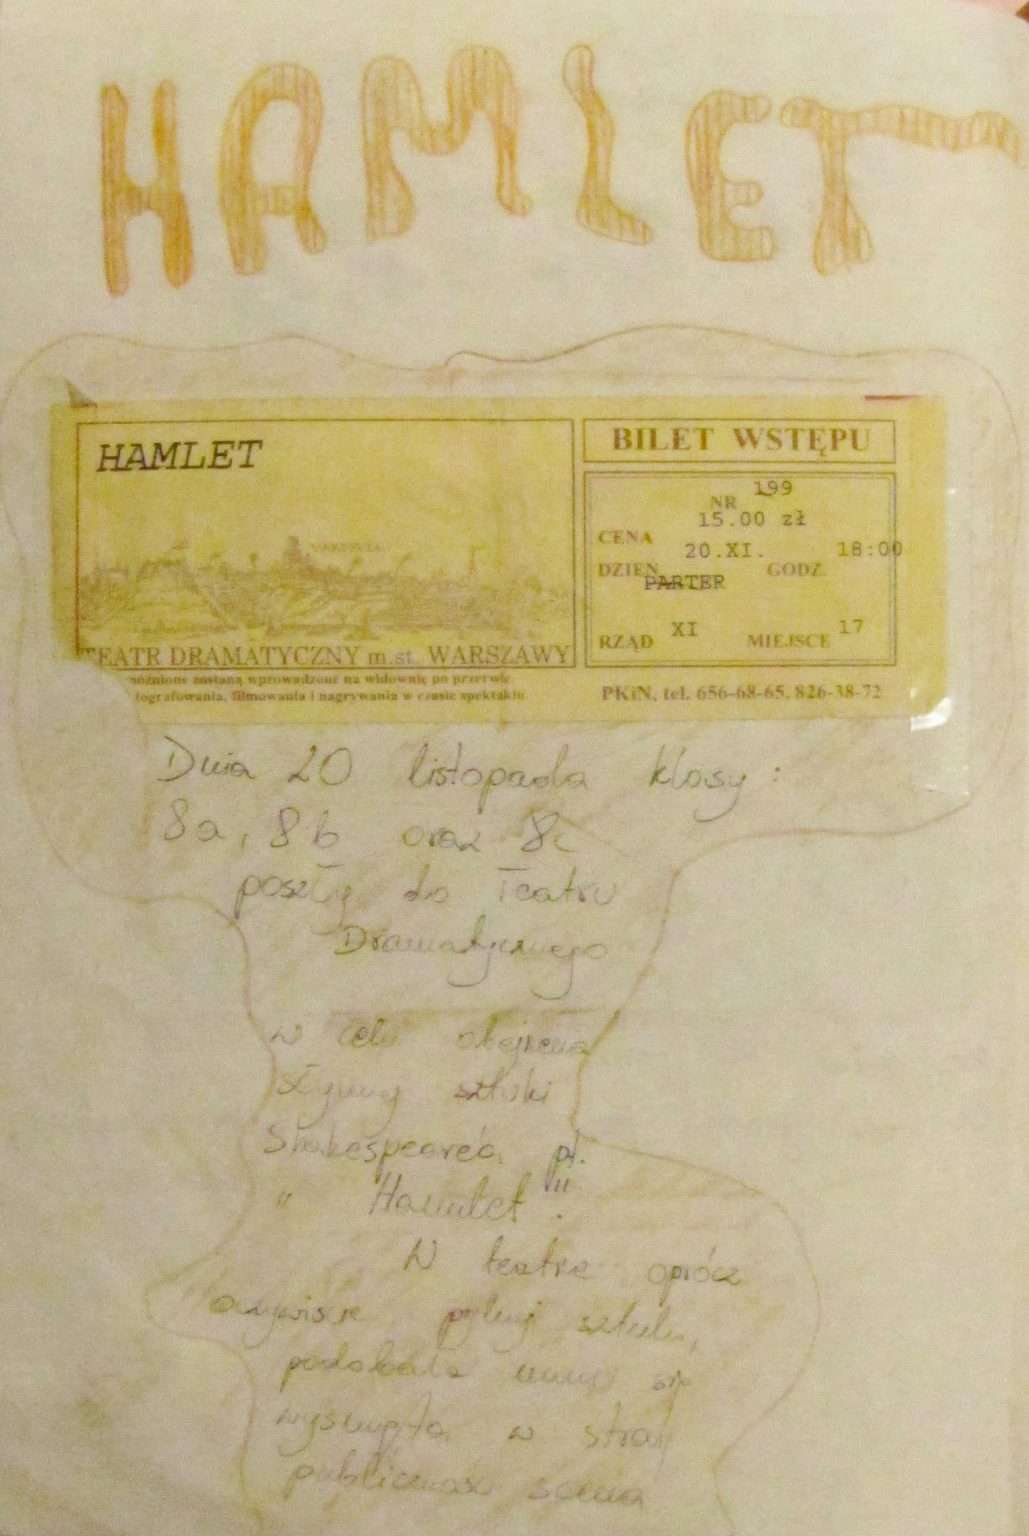 HAMLET
HAMLET
TEATR DRAMATYCZNY m.st. WARSZAWY
zostaną wprowadzone na widownię po przerwie.
tografowania, filmowania i nagrywania w czasie spektaklu.
BILET WSTĘPU
NR 199
CENA 15.00 zł
DZIEŃ 20.XI. GODZ. 18:00
PARTER
RZĄD XI MIEJSCE 17
PKiN, tel. 656-68-65, 826-38-72
Dnia 20 listopada klasy:
8a, 8b oraz 8c
poszły do Teatru
Dramatycznego
w celu obejrzenia
słynnej sztuki
Shakespeare'a pt.
"Hamlet".
W teatrze oprócz
oczywiście sztuki,
podobała mi się
wysunięta w stronę
publiczności scena